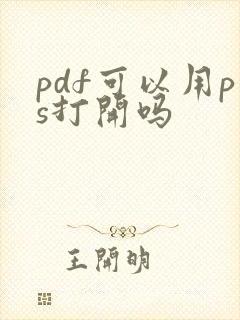 pdf可以用p
s打開吗
王開明